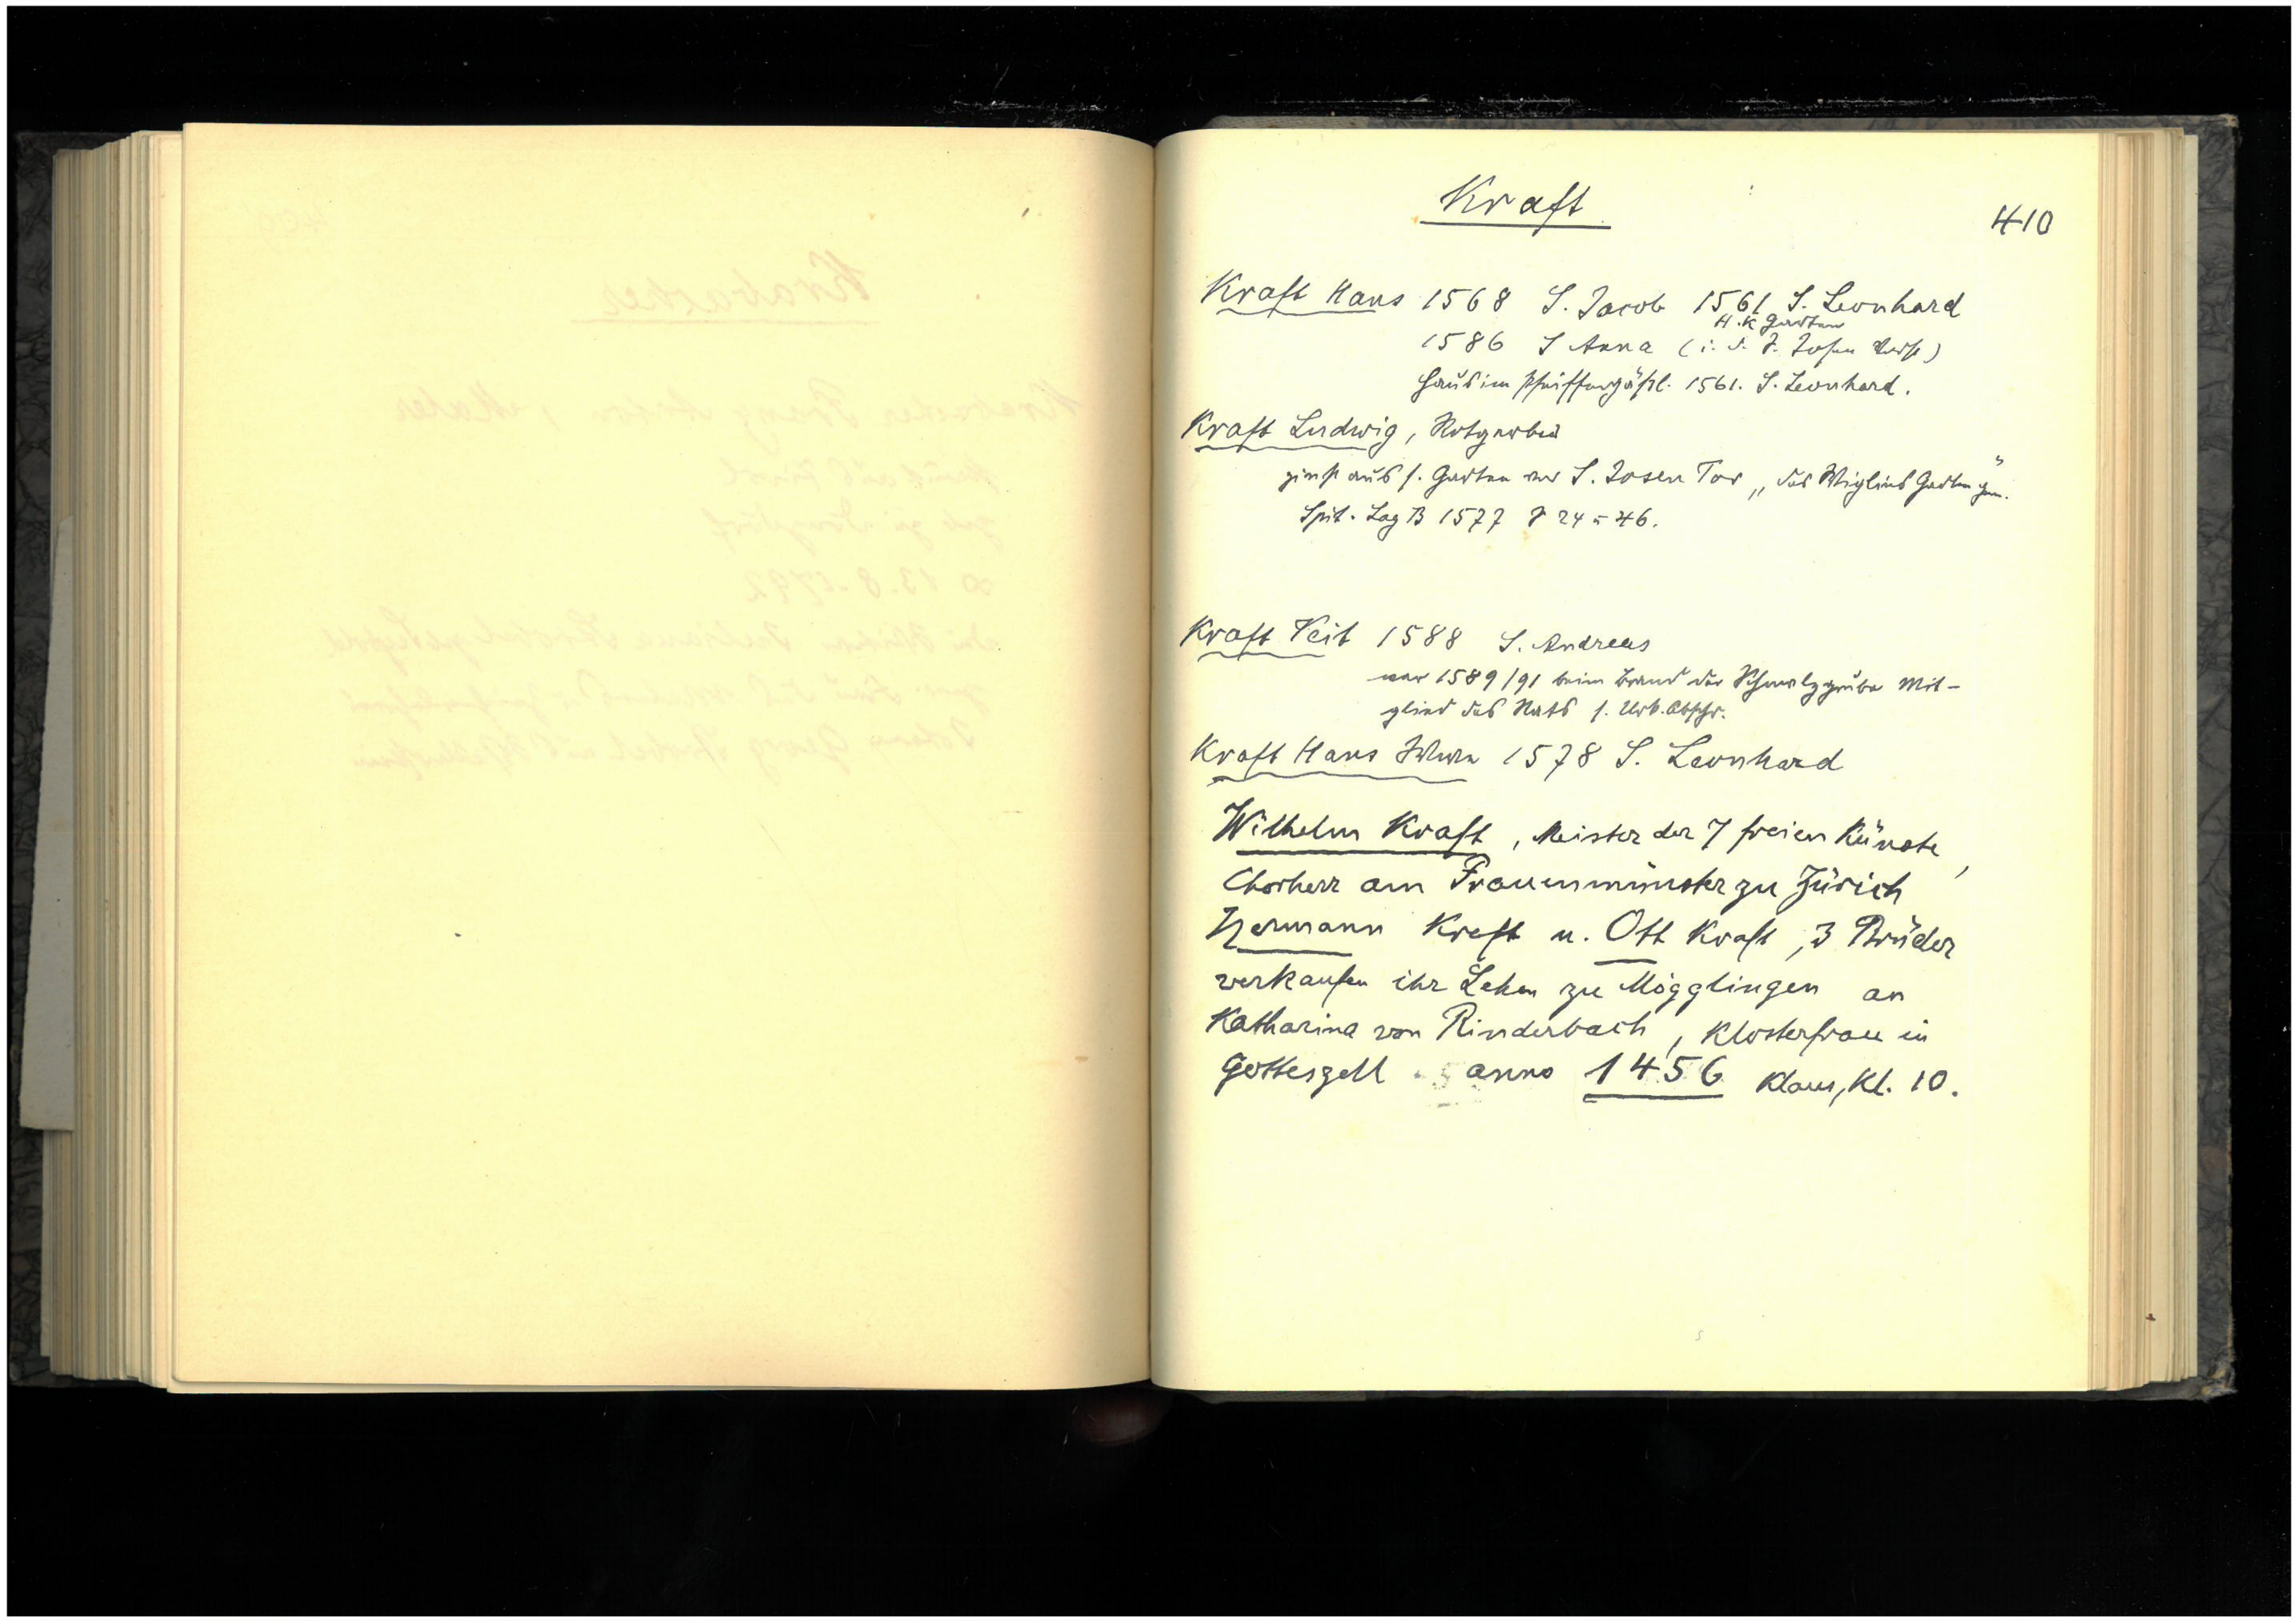 Kraft
410
Kraft Hans 1568 S. Jacob 1561 S. Leonhard
H. K Garten
1586 S Anna (i. d. J. Josen
Haus im Pfeiffergäßl. 1561. S. Leonhard.
Kraft Ludwig, Rotgerber
zinst aus s. Garten vor S. Josen Tor „des Wiglins Garten" gen.
Spit. Lag B 1577 24 u 46.
Kraft Veit 1588 S. Andreas
war 1589/91 beim Brand der Schmalzgrube Mit-
glied des Rats s. Urk. Abschr.
Kraft Hans 1578 S. Leonhard
Wilhelm Kraft, Meister der 7 freien Künste,
Chorherr am Frauenmünster zu Zürich
Hermann Kraft u. Ott Kraft, 3 Brüder
verkaufen ihr Lehen zu Mögglingen an
Katharina von Rinderbach, Klosterfrau in
Gotteszell anno 1456 Klaus, Kl. 10.